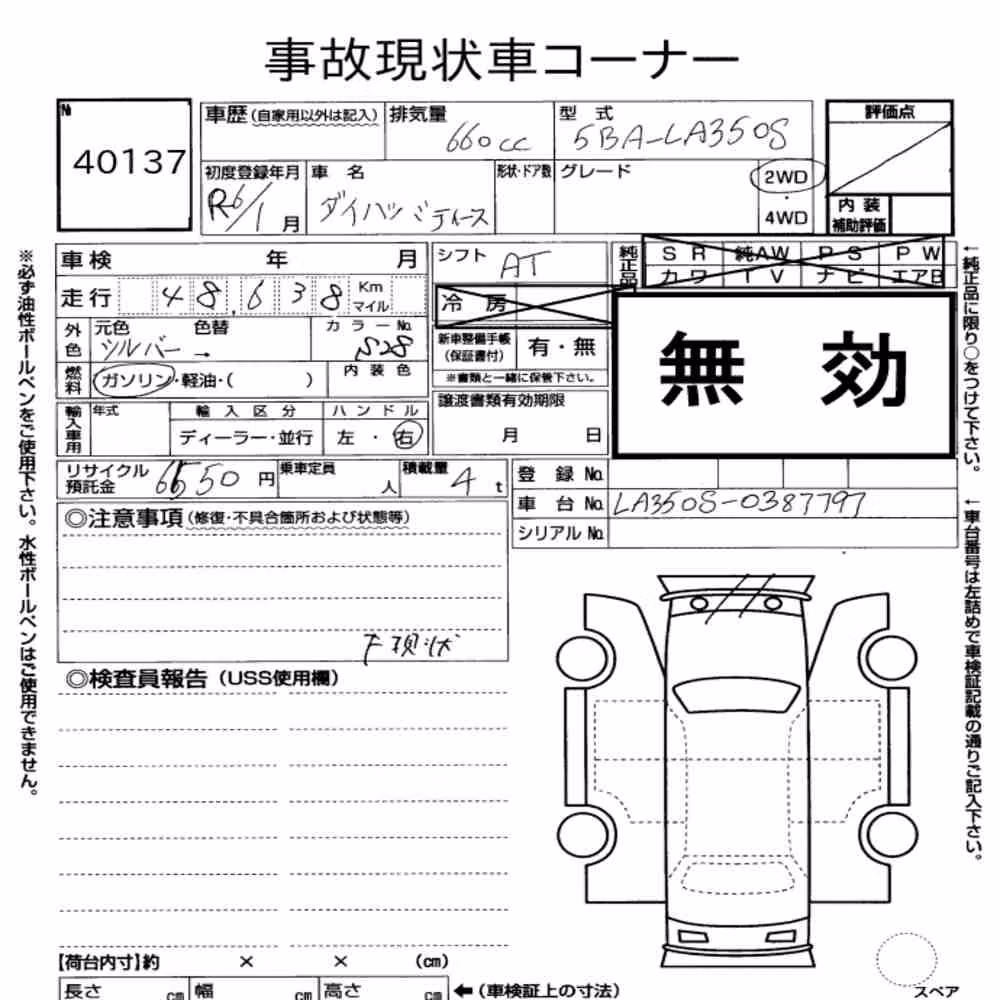 事故現状車コーナー
№
40137
車歴 (自家用以外は記入) 排気量 型式 評価点
660cc 5BA-LA350S
初度登録年月 車名 形状・ドア数 グレード 2WD
R6/1月 ダイハツ ミティース 4WD
内装
補助評価
車検 年 月
シフト AT
純正品 SR 純AW PS PW
カワ TV ナビ エアB
走行 48,638 Km マイル
冷房
無効
外色 元色 色替 カラーNo.
シルバー → S28
新車整備手帳 (保証書付) 有・無
※書類と一緒に保管下さい。
燃料 ガソリン・軽油・( ) 内装色
輸入車用 年式 輸入区分 ハンドル
ディーラー・並行 左・右
譲渡書類有効期限
月 日
リサイクル預託金 6550円 乗車定員 人 積載量 4 t
登録 No.
車台 No. LA350S-0387797
シリアル No.
◎注意事項 (修復・不具合箇所および状態等)
現状
◎検査員報告 (USS使用欄)
【荷台内寸】約 × × (cm)
長さ cm 幅 cm 高さ cm ←(車検証上の寸法)
スペア
※必ず油性ボールペンをご使用下さい。水性ボールペンはご使用できません。
←純正品に限り○をつけて下さい。
←車台番号は左詰めで車検証記載の通りご記入下さい。